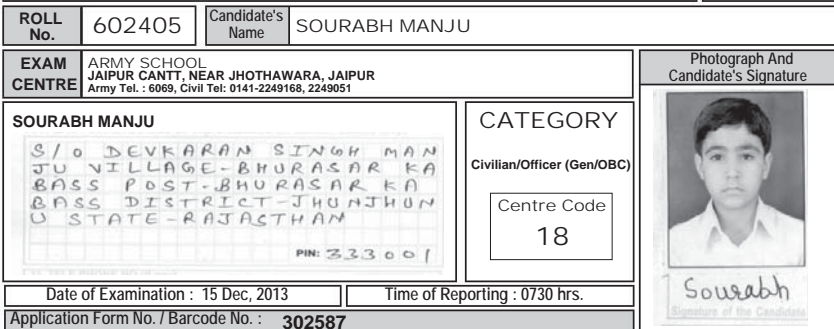 ROLL No. 602405 Candidate's Name SOURABH MANJU
EXAM CENTRE
ARMY SCHOOL
JAIPUR CANTT, NEAR JHOTHAWARA, JAIPUR
Army Tel. : 6069, Civil Tel: 0141-2249168, 2249051
Photograph And
Candidate's Signature
SOURABH MANJU
S/O DEVKARAN SINGH MAN
JU VILLAGE-BHURASAR KA
BASS POST-BHURASAR KA
BASS DISTRICT-JHUNJHUN
U STATE-RAJASTHAN
PIN: 333001
CATEGORY
Civilian/Officer (Gen/OBC)
Centre Code
18
Sourabh
Signature of the Candidate
Date of Examination : 15 Dec, 2013
Time of Reporting : 0730 hrs.
Application Form No. / Barcode No. : 302587